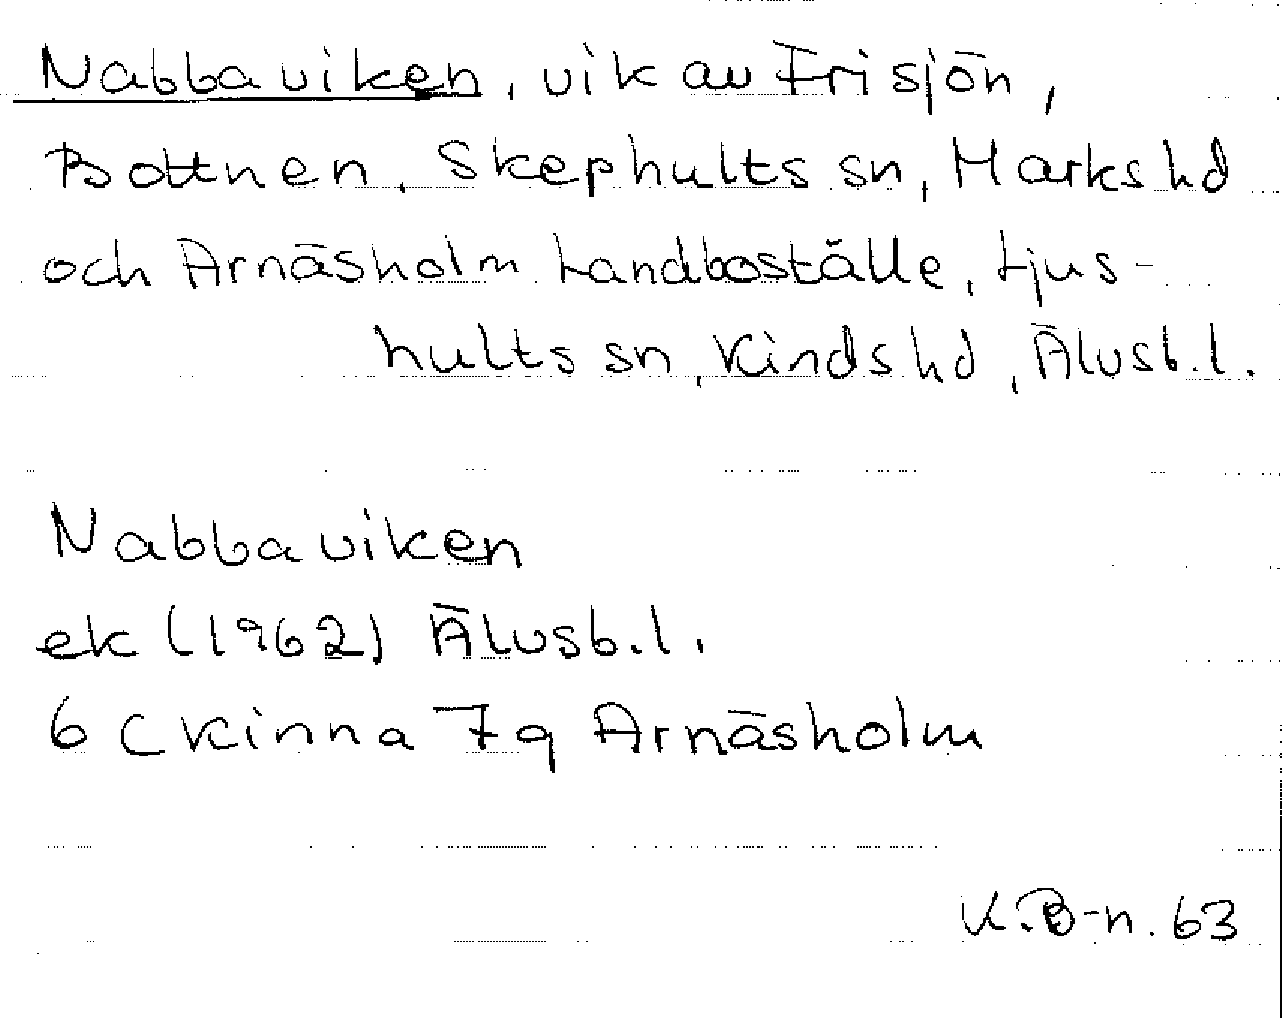 Nabbaviken, vik av Frisjön,
Bottnen, Skephults sn, Marks hd
och Arnäsholm Landboställe, Ljus-
hults sn, Kinds hd, Älvsb.l.
Nabbaviken
ek (1962) Älvsb.l.
6 C Kinna 7q Arnäsholm
K.B-n. 63